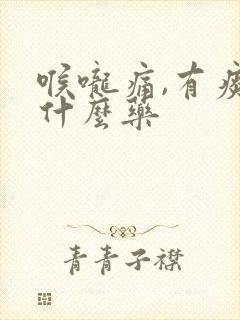 喉嚨痛,有
什麼藥
青青子襟